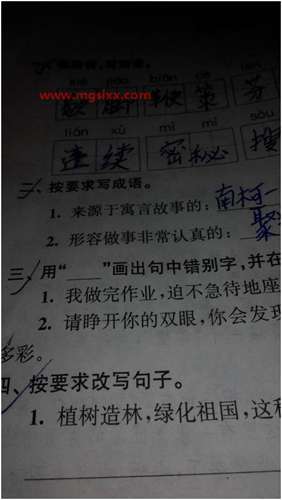 www.mgsixx.com
biān cè
策 芬
lián xù mì mì sōu
连续 密秘 搜
二、按要求写成语。
1. 来源于寓言故事的：南柯一
2. 形容做事非常认真的：聚
三、用“____”画出句中错别字，并在
1. 我做完作业，迫不急待地座
2. 请睁开你的双眼，你会发现
多彩。
四、按要求改写句子。
1. 植树造林，绿化祖国，这种